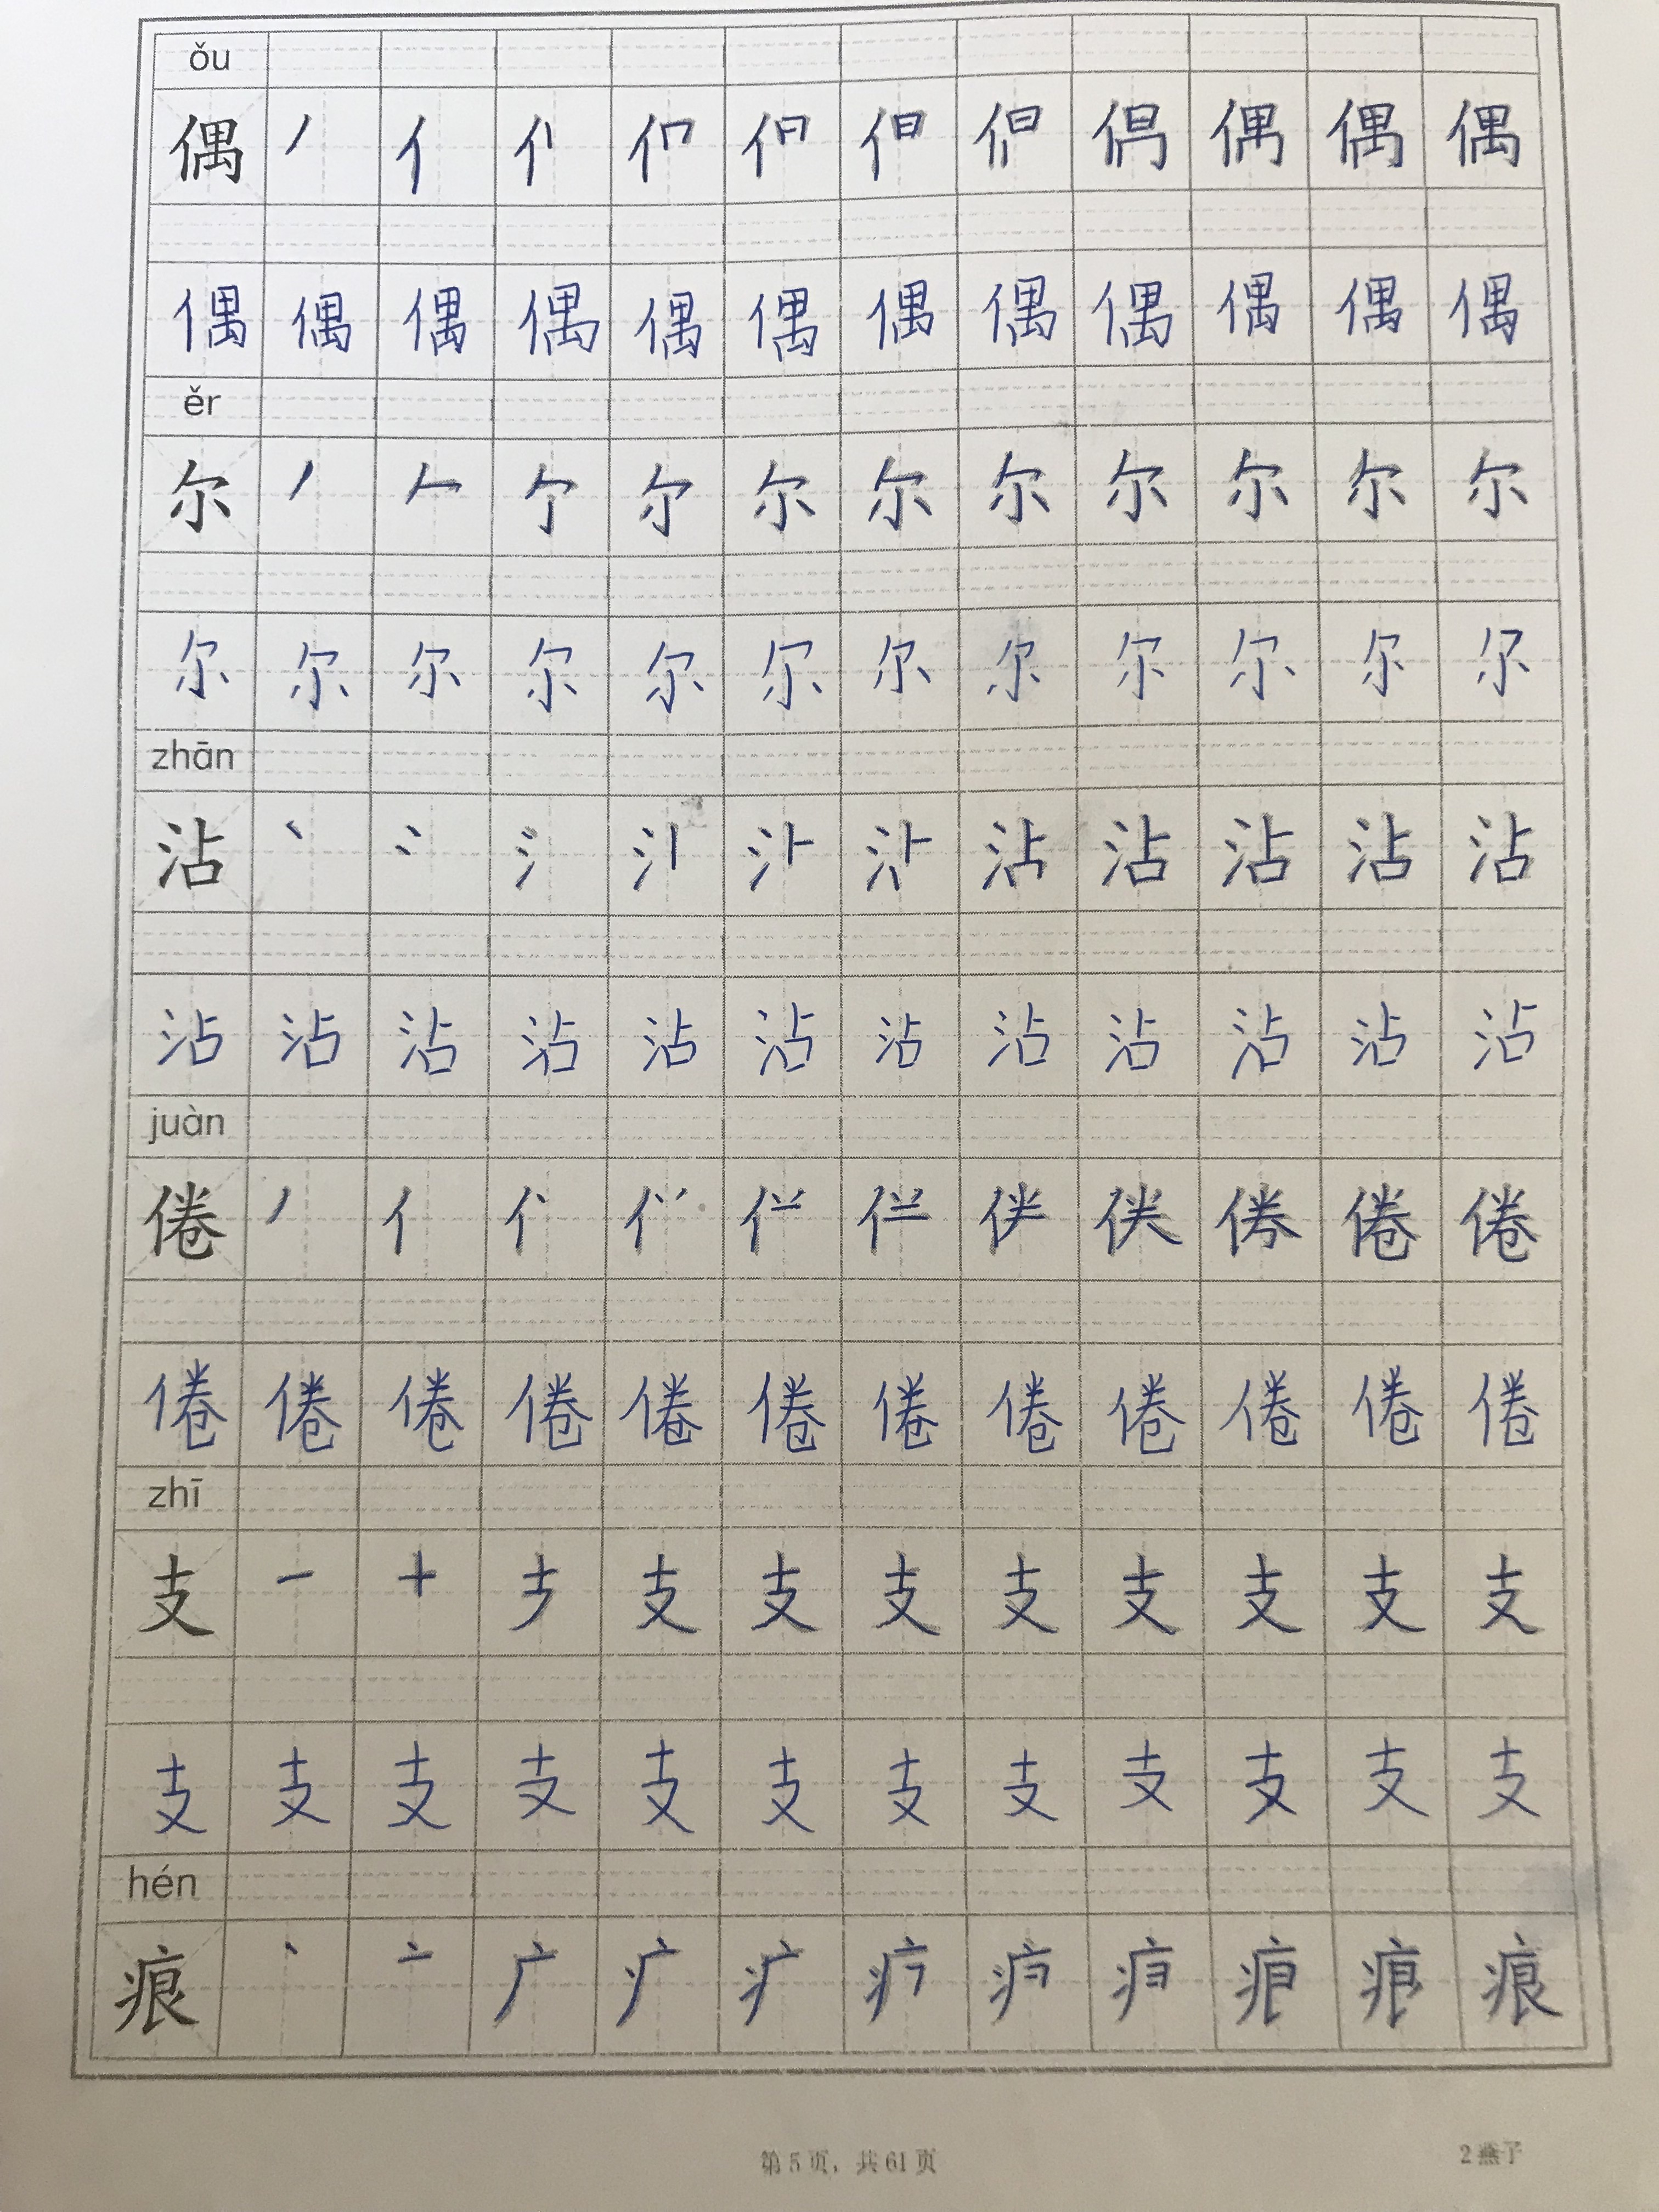 ǒu
偶 丿 亻 偶 偶 偶
偶 偶 偶 偶 偶 偶 偶 偶 偶 偶 偶 偶
ěr
尔 丿 尔 尔 尔 尔 尔 尔 尔 尔
尔 尔 尔 尔 尔 尔 尔 尔 尔 尔 尔 尔
zhān
沾 丶 冫 氵 沾 沾 沾 沾
沾 沾 沾 沾 沾 沾 沾 沾 沾 沾 沾 沾
juàn
倦 丿 亻 倦 倦
倦 倦 倦 倦 倦 倦 倦 倦 倦 倦 倦 倦
zhī
支 一 十 支 支 支 支 支 支 支 支
支 支 支 支 支 支 支 支 支 支 支 支
hén
痕 丶 亠 广 疒 痕
第 5 页，共 61 页
2 燕子